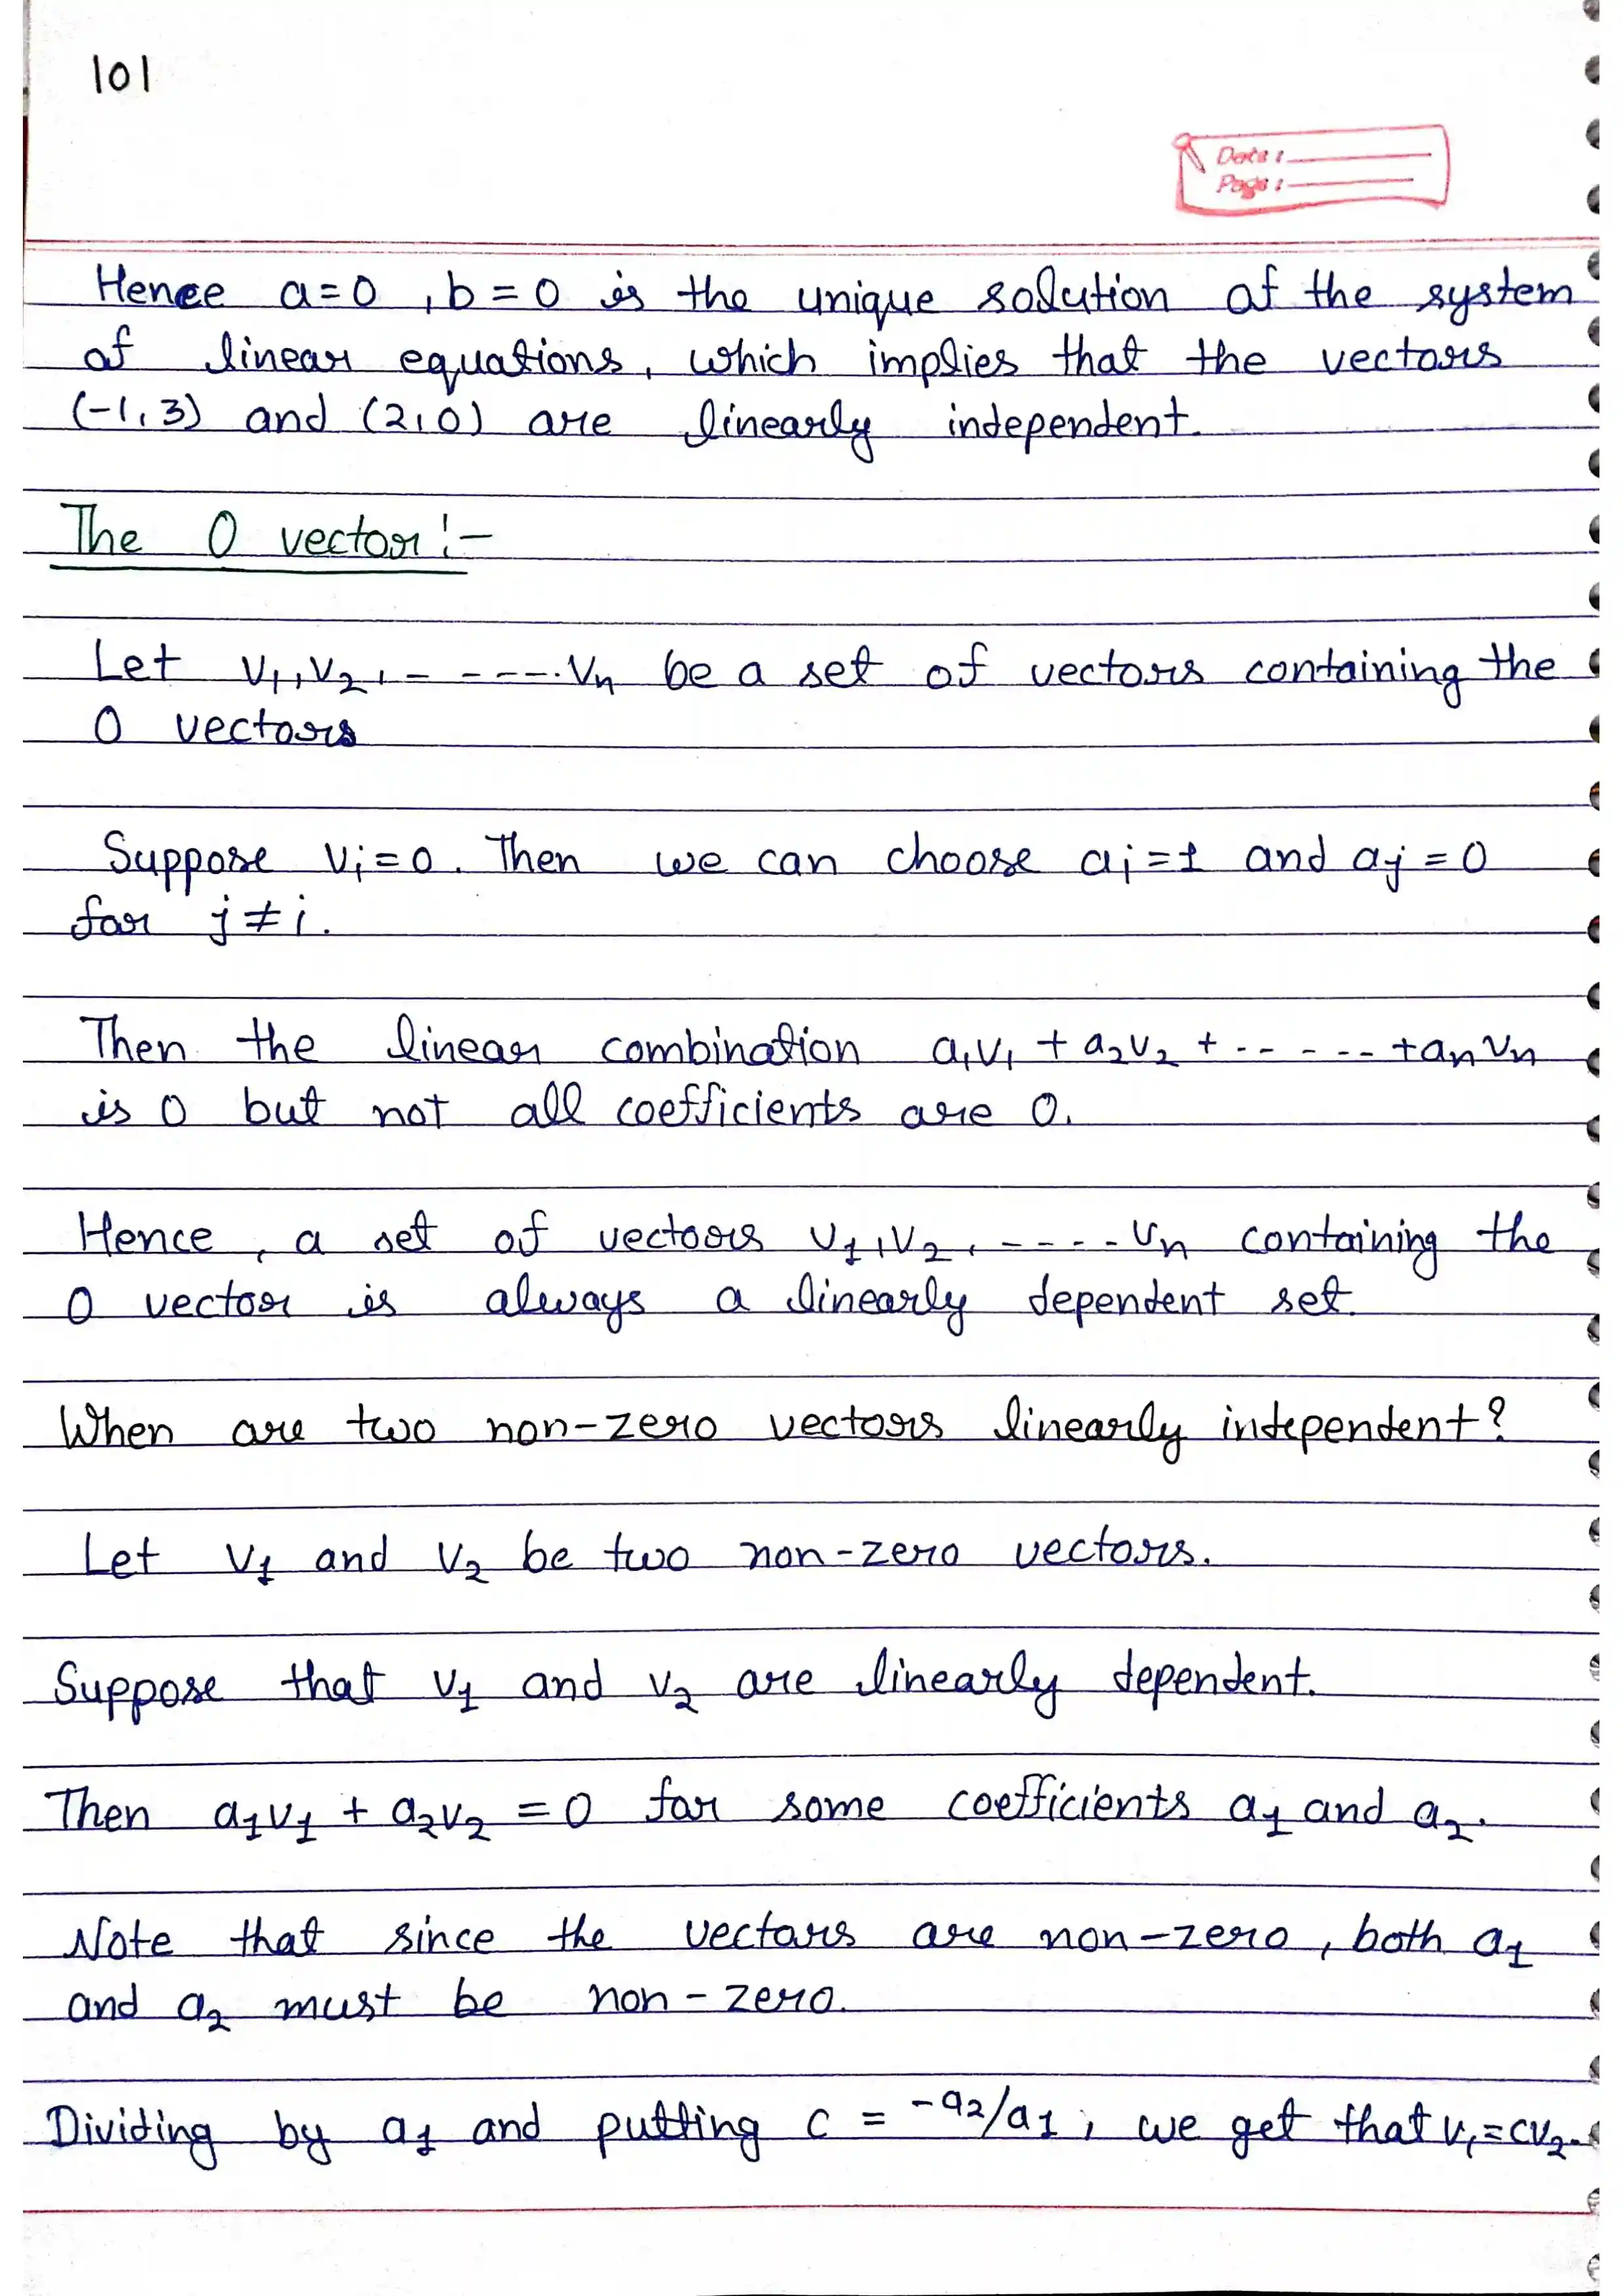 101
Date:
Page:
Hence a=0, b=0 is the unique solution of the system
of linear equations, which implies that the vectors
(-1,3) and (2,0) are linearly independent.
The 0 vector:-
Let v₁, v₂, - - - - - . vₙ be a set of vectors containing the
0 vectors
Suppose vᵢ=0. Then we can choose aᵢ=1 and aⱼ=0
for j≠i.
Then the linear combination a₁v₁ + a₂v₂ + - - - - - - +aₙvₙ
is 0 but not all coefficients are 0.
Hence, a set of vectors v₁,v₂, - - - - vₙ containing the
0 vector is always a linearly dependent set.
When are two non-zero vectors linearly independent?
Let v₁ and v₂ be two non-zero vectors.
Suppose that v₁ and v₂ are linearly dependent.
Then a₁v₁ + a₂v₂ = 0 for some coefficients a₁ and a₂.
Note that since the vectors are non-zero, both a₁
and a₂ must be non-zero.
Dividing by a₁ and putting c = -a₂/a₁, we get that v₁=cv₂.